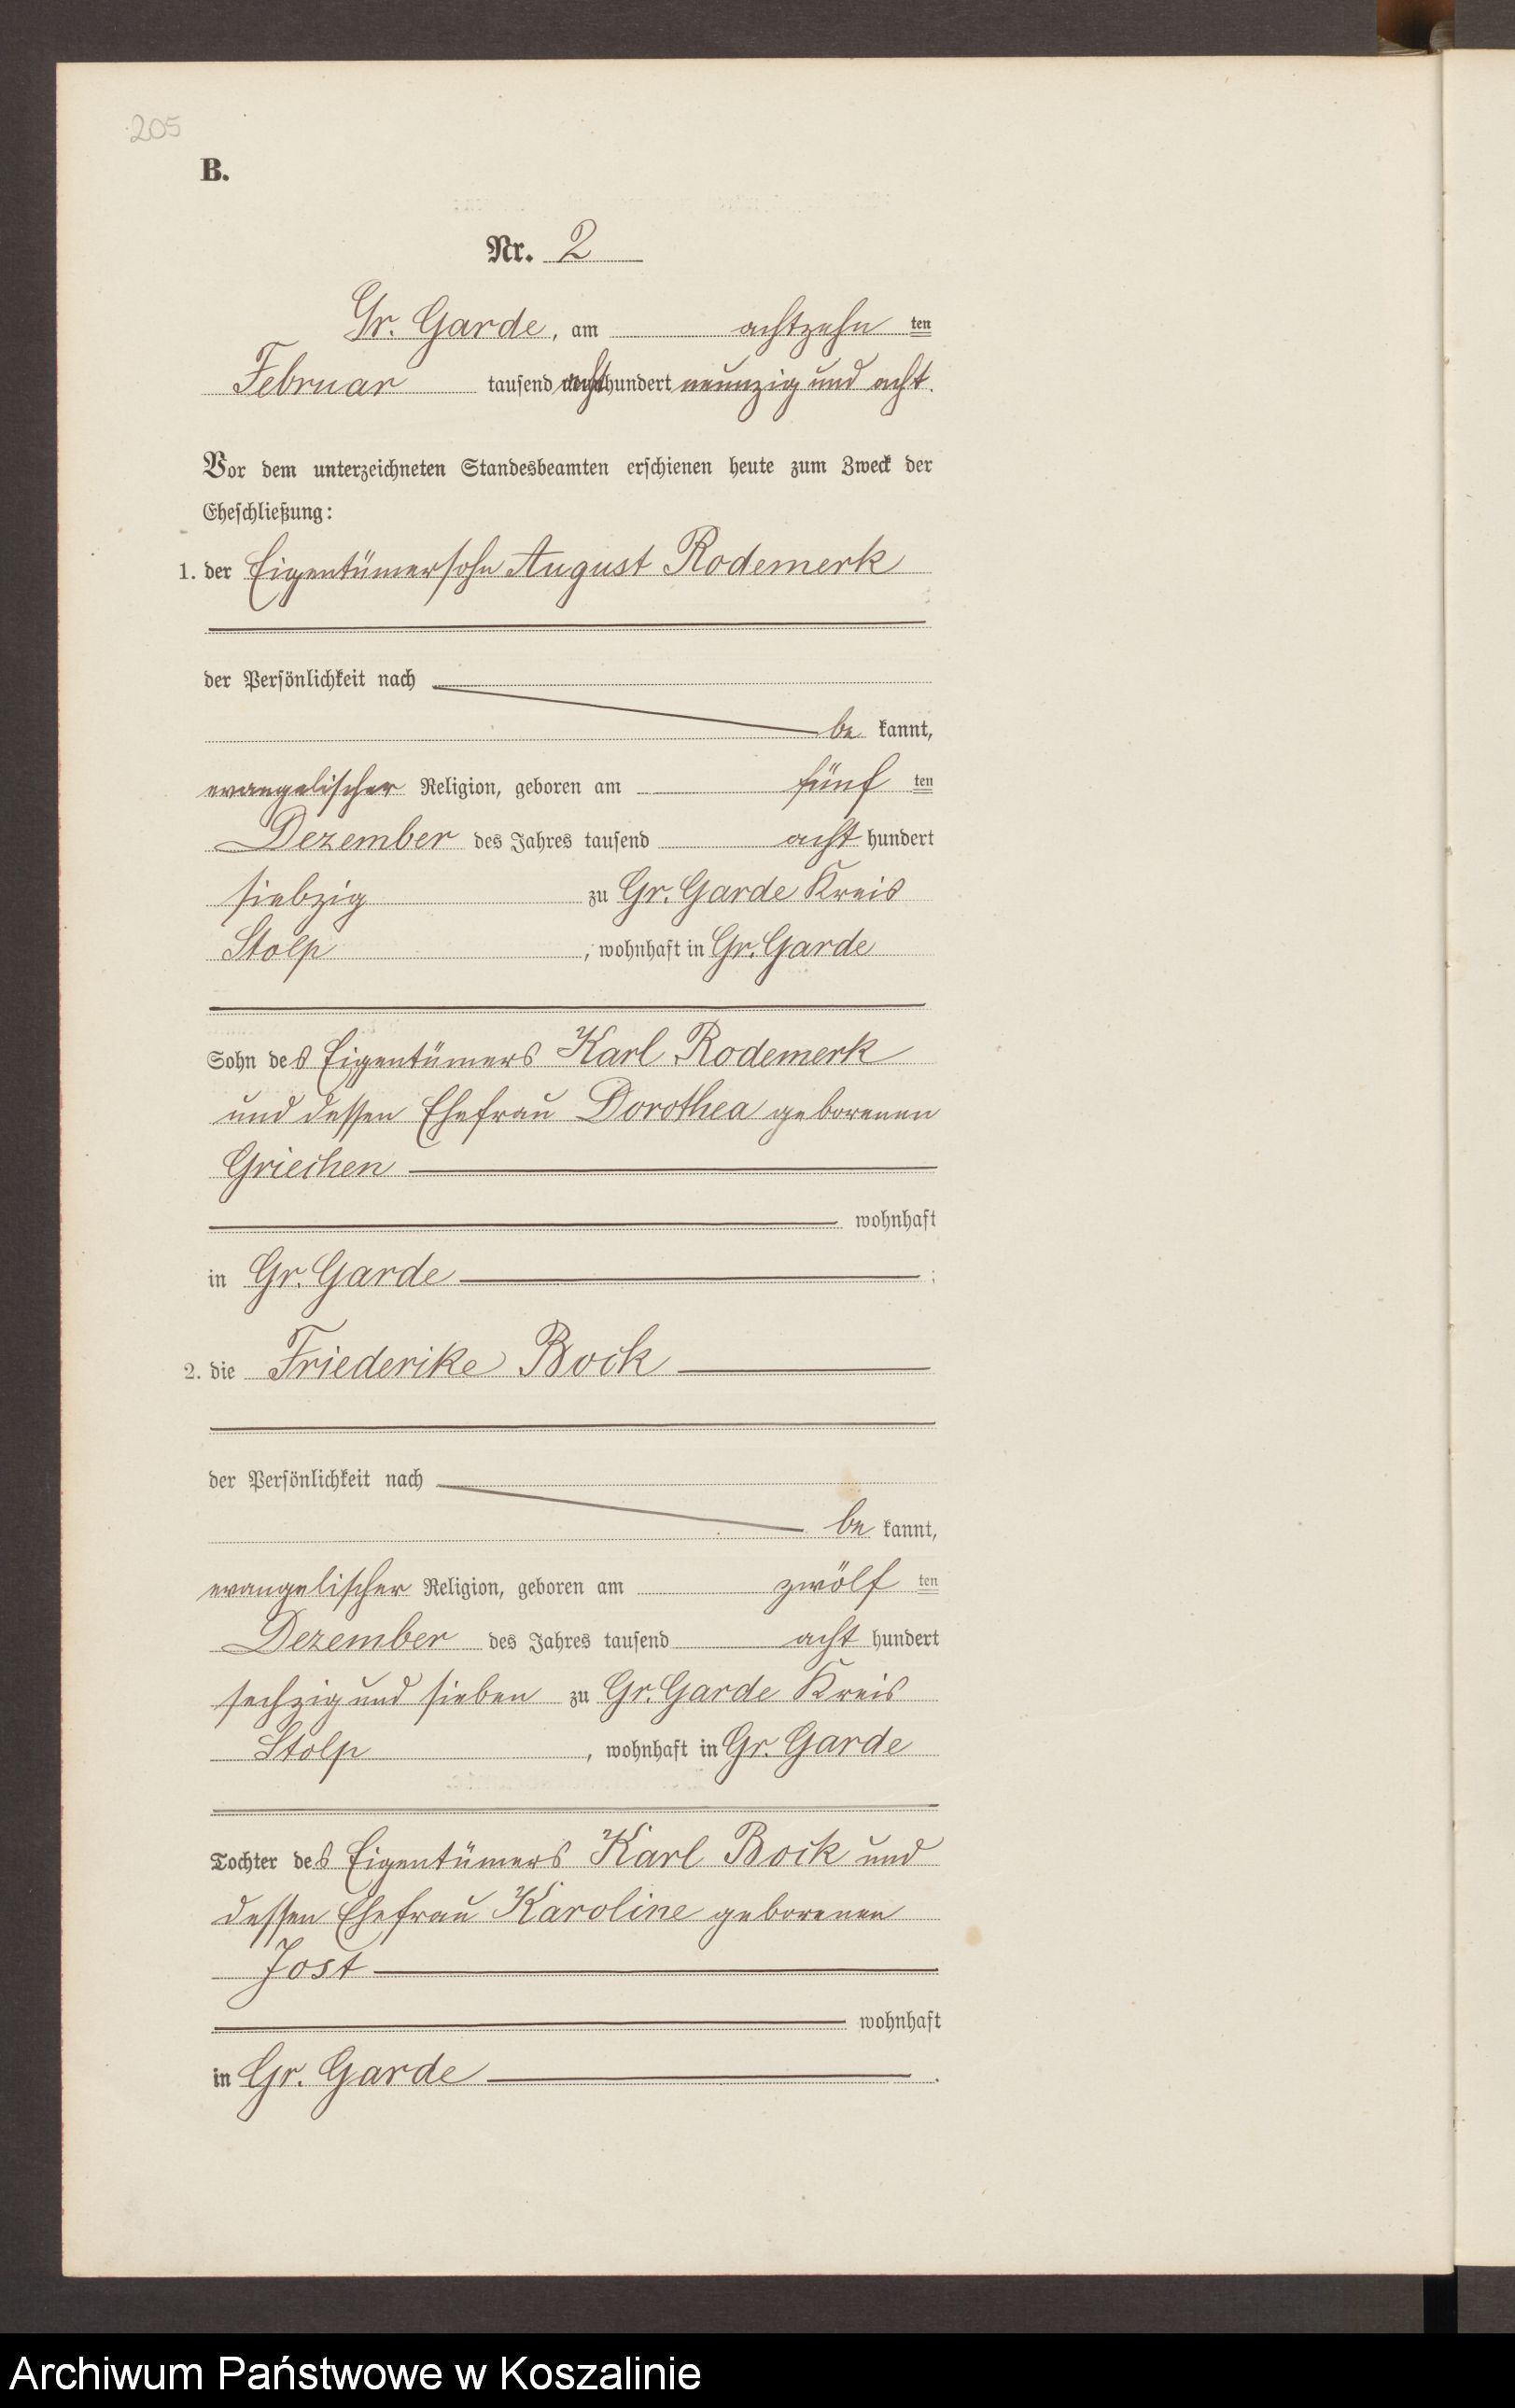 205
B.
Nr. 2
Gr. Garde, am achtzehn ten
Februar tausend achthundert neunzig und acht.
Vor dem unterzeichneten Standesbeamten erschienen heute zum Zweck der
Eheschließung:
1. der Eigentümersohn August Rodemerk
der Persönlichkeit nach
be kannt,
evangelischer Religion, geboren am fünf ten
Dezember des Jahres tausend acht hundert
siebzig zu Gr. Garde Kreis
Stolp, wohnhaft in Gr. Garde
Sohn des Eigentümers Karl Rodemerk
und dessen Ehefrau Dorothea geborenen
Griechen
wohnhaft
in Gr. Garde ;
2. die Friederike Bock
der Persönlichkeit nach
be kannt,
evangelischer Religion, geboren am zwölf ten
Dezember des Jahres tausend acht hundert
sechzig und sieben zu Gr. Garde Kreis
Stolp, wohnhaft in Gr. Garde
Tochter des Eigentümers Karl Bock und
dessen Ehefrau Karoline geborenen
Jost
wohnhaft
in Gr. Garde .
Archiwum Państwowe w Koszalinie